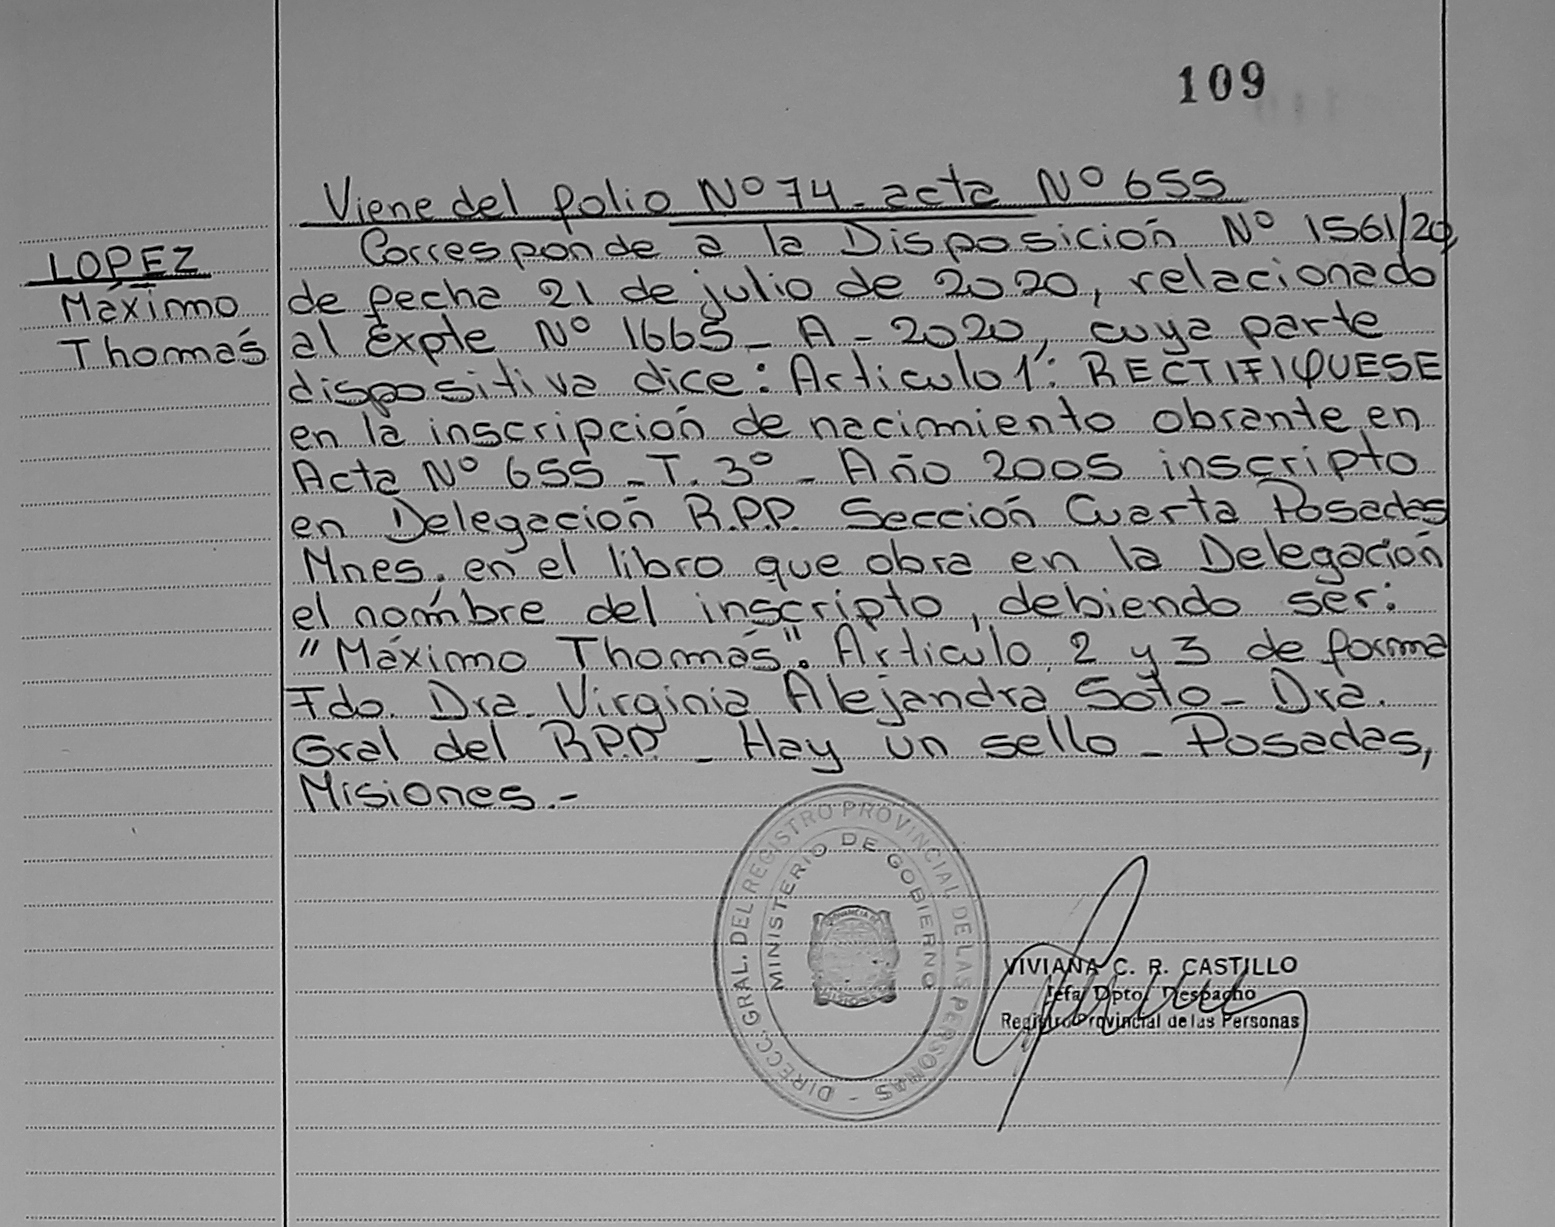 109
Viene del folio Nº 74 - acta Nº 655
LOPEZ
Máximo
Thomás
Corresponde a la Disposición Nº 1561/20,
de fecha 21 de julio de 2020, relacionado
al Expte Nº 1665 - A - 2020, cuya parte
dispositiva dice: Articulo 1º: RECTIFIQUESE
en la inscripción de nacimiento obrante en
Acta Nº 655 - T. 3º - Año 2005 inscripto
en Delegación R.P.P. Sección Cuarta Posadas
Mnes. en el libro que obra en la Delegación
el nombre del inscripto, debiendo ser:
"Máximo Thomás". Articulo 2 y 3 de forma
Fdo. Dra. Virginia Alejandra Soto - Dra.
Gral del R.P.P. - Hay un sello - Posadas,
Misiones.-
DIRECC. GRAL. DEL REGISTRO PROVINCIAL DE LAS PERSONAS -
MINISTERIO DE GOBIERNO
VIVIANA C. R. CASTILLO
Jefa Dpto. Despacho
Registro Provincial de las Personas